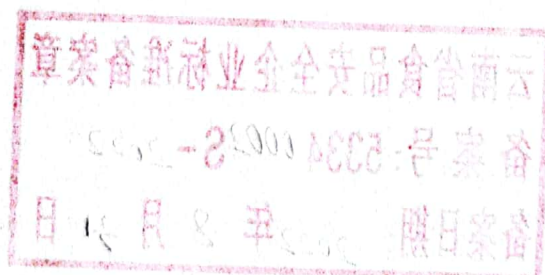 云南省食品安全企业标准备案章
备案号:5334 0002S-2022
备案日期 2022年8月 日